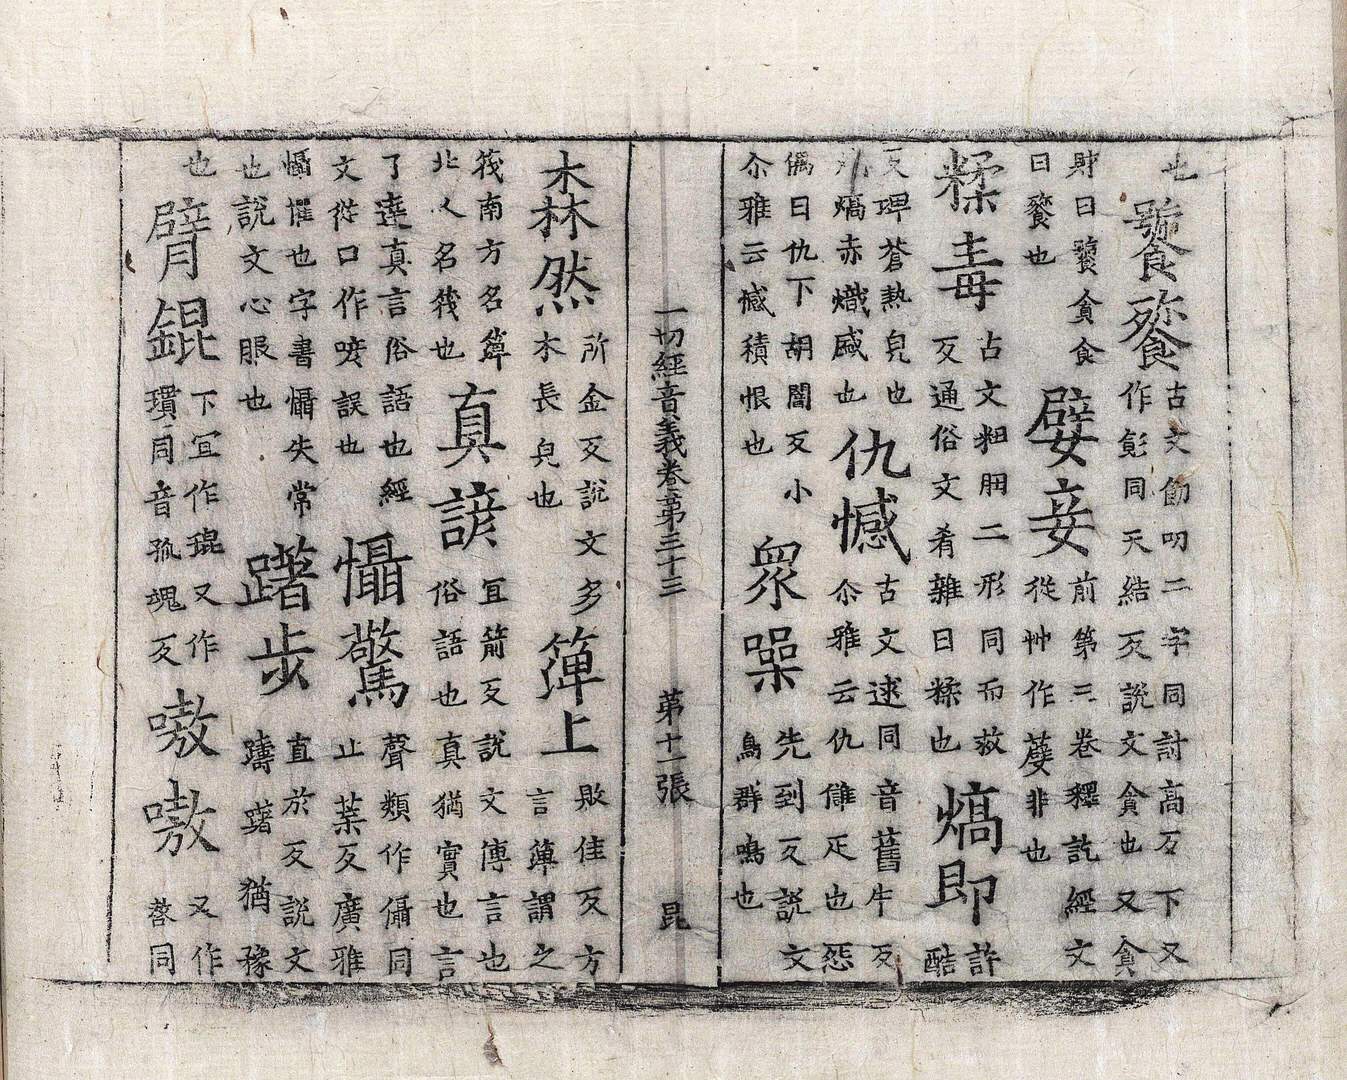 也饕餮古文飻叨二字同討高反下又作同天結反說文貪也又貪
財曰饕貪食曰餮也嬖妾前第三卷釋訖經文從艸作非也
糅毒古文粈二形同而救反通俗文肴雜曰糅也熇即許酷
反埤蒼熱皃也熇赤熾盛也仇憾古文逑同音舊牛反尒雅云仇讎疋也怨
偶曰仇下胡闇反小尒雅云憾積恨也衆噪先到反說文鳥群鳴也
一切經音義卷第三十三 第十一張 昆
森然所金反說文多木長皃也箄上敗佳反方言箄謂之
筏南方名箄北人名筏也真諺宜箭反說文傳言也俗語也真猶實也言
了達真言俗語也經文從口作喭誤也懾驚聲類作㒤同止葉反廣雅
懾懼也字書懾失常也說文心服也躇步直於反說文躊躇猶豫
也臂錕下宜作琨又作瑻同音孤魂反嗷嗷又作同